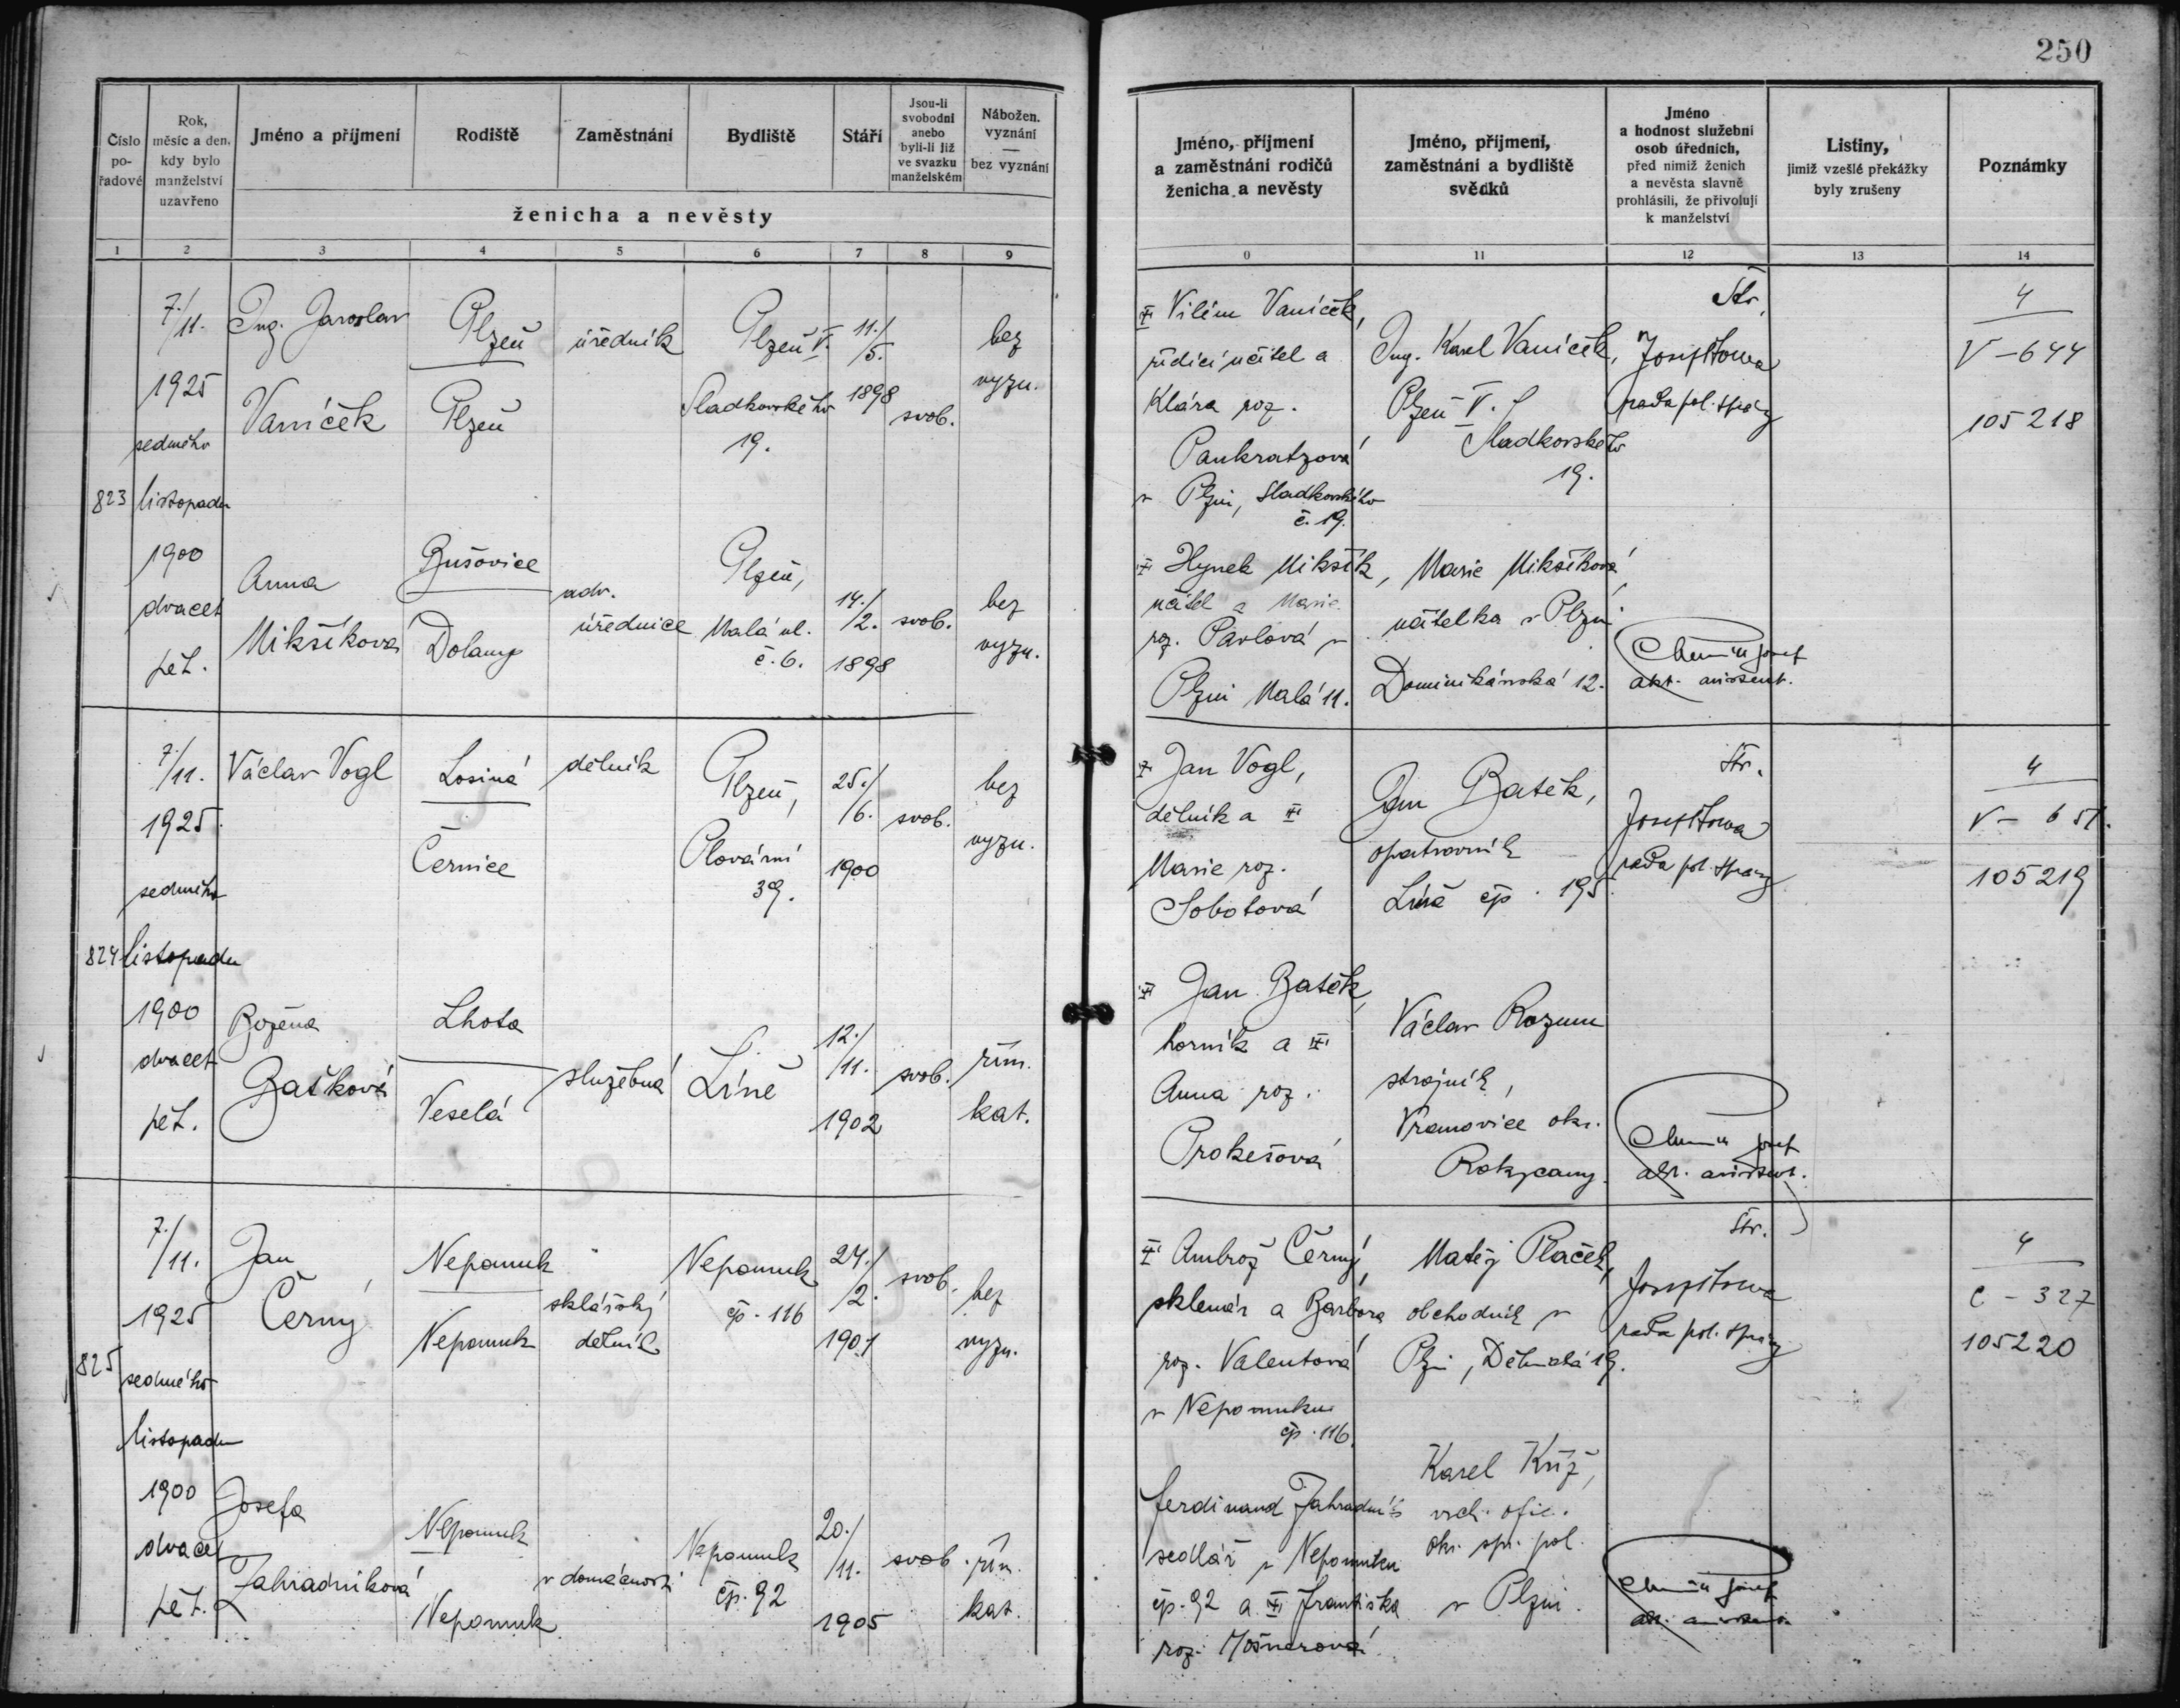 250
Číslo
po-
řadové
Rok,
měsíc a den,
kdy bylo
manželství
uzavřeno
Jméno a příjmení
Rodiště
Zaměstnání
Bydliště
Stáří
Jsou-li
svobodni
anebo
byli-li již
ve svazku
manželském
Nábožen.
vyznání
—
bez vyznání
ženicha a nevěsty
1 2 3 4 5 6 7 8 9
Jméno, příjmení
a zaměstnání rodičů
ženicha a nevěsty
Jméno, příjmení,
zaměstnání a bydliště
svědků
Jméno
a hodnost služební
osob úředních,
před nimiž ženich
a nevěsta slavně
prohlásili, že přivolují
k manželství
Listiny,
jimiž vzešlé překážky
byly zrušeny
Poznámky
0 11 12 13 14
823
7./11.
1925
sedmého
listopadu
1900
dvacet
pět.
Ing. Jaroslav
Vaníček
Plzeň
Plzeň
úředník
Plzeň V.
Sladkovského
19.
11./5.
1898
svob.
bez
vyzn.
Vilém Vaníček,
řídící učitel a
Klára roz.
Pankratzová
v Plzni, Sladkovského
č. 19.
Ing. Karel Vaníček,
Plzeň V.
Sladkovského
19.
Str.
rada pol. správy
4
V-644
105218
Anna
Mikšíková
Bušovice
Dolany
adv.
úřednice
Plzeň,
Malá ul.
č. 6.
14./2.
1898
svob.
bez
vyzn.
Hynek Mikšík,
učitel a Marie
roz. Pavlová v
Plzni Malá 11.
Marie Mikšíková
učitelka v Plzni
Dominikánská 12.
Josef
asistent.
824
7./11.
1925
sedmého
listopadu
1900
dvacet
pět.
Václav Vogl
Losiná
Černice
dělník
Plzeň,
Plovární
39.
25./6.
1900
svob.
bez
vyzn.
Jan Vogl,
dělník a
Marie roz.
Sobotová
Jan Bašek,
opatrovník
Líně čp. 195
Str.
rada pol. správy
4
V-651.
105219
Božena
Bašková
Lhota
Veselá
služebná
Líně
12./11.
1902
svob.
řím.
kat.
Jan Bašek,
horník a
Anna roz.
Prokešová
Václav Rozum
strojník,
Vranovice okr.
Rokycany.
Josef
asistent.
825
7./11.
1925
sedmého
listopadu
1900
dvacet
pět.
Jan
Černý
Nepomuk
Nepomuk
sklářský
dělník
Nepomuk
čp. 116
24./2.
1901
svob.
bez
vyzn.
Ambrož Černý,
sklenář a Barbora
roz. Valentová
v Nepomuku
čp. 116.
Matěj Plaček,
obchodník v
Plzni, Dělnická 19.
Str.
rada pol. správy
4
C-327
105220
Josefa
Zahradníková
Nepomuk
Nepomuk
v domácnosti
Nepomuk
čp. 92
20./11.
1905
svob.
řím.
kat.
Ferdinand Zahradník
sedlář v Nepomuku
čp. 92 a Františka
roz. Mošnerová.
Karel Kříž,
vrch. ofic.
okr. spr. pol.
v Plzni.
Josef